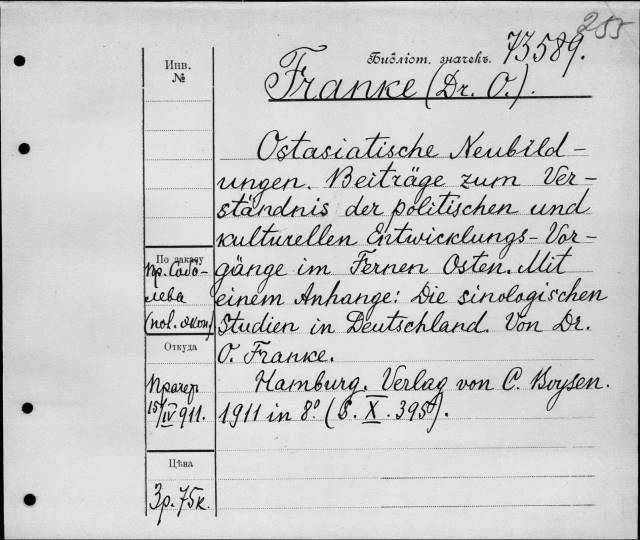 255
Библіот. значекъ. 73589.
Franke (Dr. O.).
Инв.
№
Ostasiatische Neubild-
ungen. Beiträge zum Ver-
ständnis der politischen und
kulturellen Entwicklungs-Vor-
gänge im Fernen Osten. Mit
einem Anhange: Die sinologischen
Studien in Deutschland. Von Dr.
O. Franke.
Hamburg. Verlag von C. Boysen.
1911 in 8º (6. X. 395).
По заказу
пр. Собо-
лева
(пол. экон)
Откуда
Прагер
15/IV 911.
Цѣна
3р. 75к.